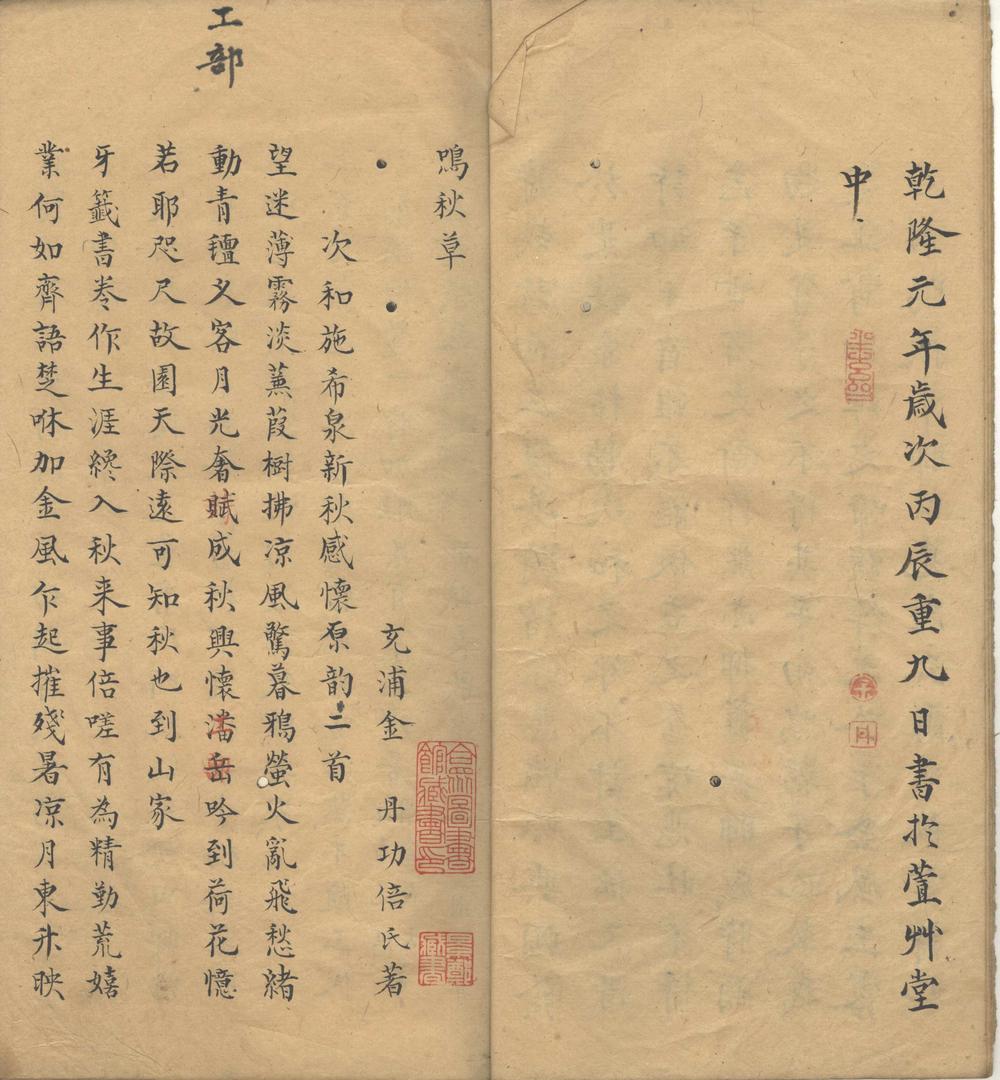 乾隆元年歲次丙辰重九日書扵萱艸堂
中
鳴秋草
充浦金丹功倍氏著
次和施希泉新秋感懷原韵二首
望迷薄霧淡蒹葭樹拂凉風驚暮鴉螢火亂飛愁緒
動青氊义客月光奢賦成秋興懷潘岳吟到荷花憶
工部
若耶咫尺故園天際遠可知秋也到山家
牙籤書卷作生涯纔入秋来事倍嗟有為精勤荒嬉
業何如齊語楚咻加金風乍起摧殘暑凉月東升映